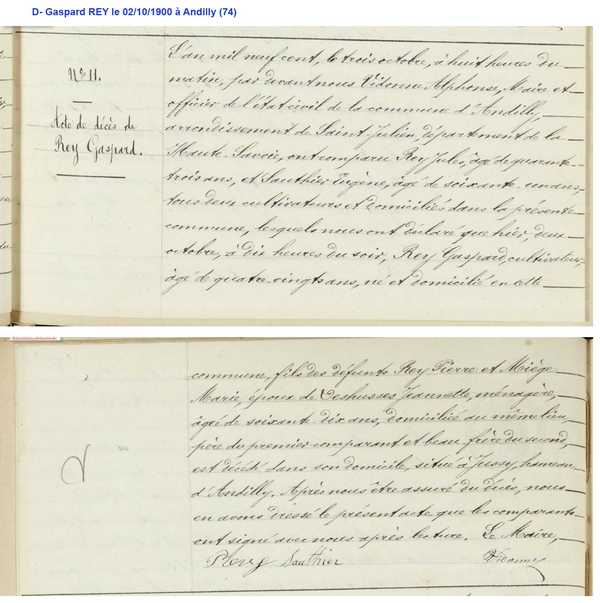 D- Gaspard REY le 02/10/1900 à Andilly (74)
N° 11.
Acte de décès de
Rey Gaspard.
L'an mil neuf cent, le trois octobre, à huit heures du
matin, par devant nous Vidonne Alphonse, Maire et
officier de l'état civil de la commune d'Andilly,
arrondissement de Saint Julien, département de la
Haute-Savoie, ont comparu Rey Jules, âgé de quarante-
trois ans, et Sauthier Eugène, âgé de soixante-un ans,
tous deux cultivateurs et domiciliés dans la présente
commune, lesquels nous ont déclaré que hier, deux
octobre, à dix heures du soir, Rey Gaspard, cultivateur,
âgé de quatre-vingts ans, né et domicilié en cette
commune, fils des défunts Rey Pierre et Miège
Marie, époux de Deshusses Jeannette, ménagère,
âgée de soixante-dix ans, domiciliés au même lieu,
père du premier comparant et beau frère du second,
est décédé dans son domicile, situé à Jussy, hameau
d'Andilly. Après nous être assuré du décès, nous
en avons dressé le présent acte que les comparants
ont signé avec nous après lecture. Le Maire,
Rey Sauthier Vidonne